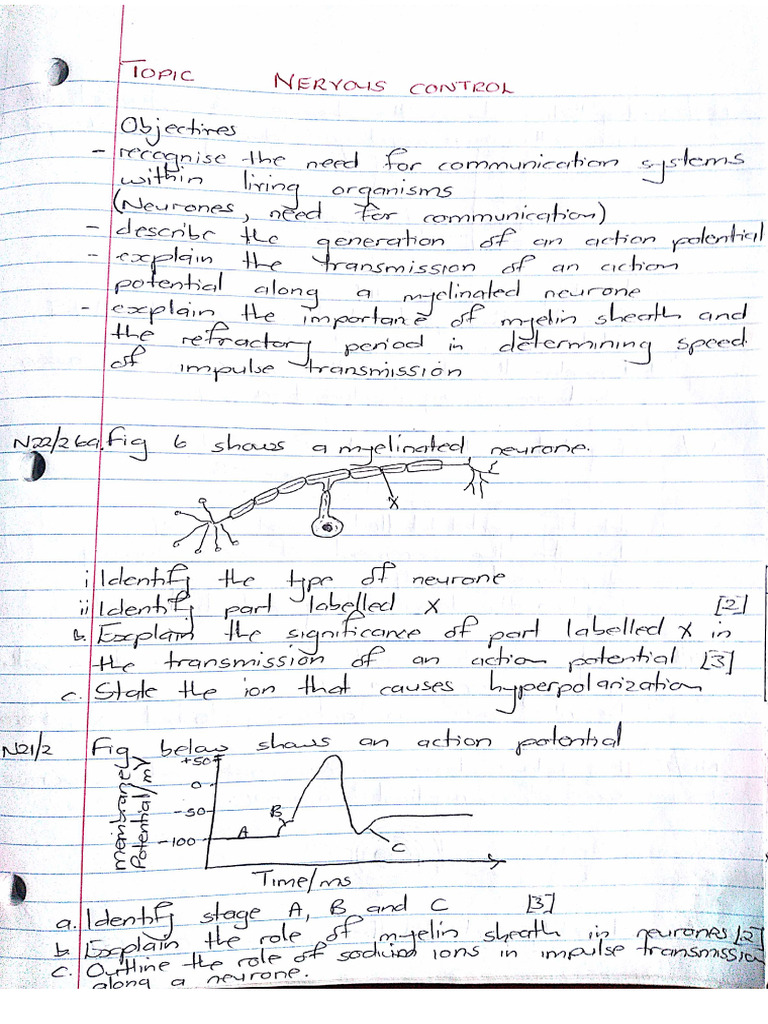 TOPIC NERVOUS CONTROL
Objectives
- recognise the need for communication systems
within living organisms
(Neurones, need for communication)
- describe the generation of an action potential
- explain the transmission of an action
potential along a myelinated neurone
- explain the importane of myelin sheath and
the refractory period in determining speed
of impulse transmission
N22/2 6a. Fig 6 shows a myelinated neurone.
X
i Identify the type of neurone
ii Identify part labelled X [2]
b. Explain the significance of part labelled X in
the transmission of an action potential [3]
c. State the ion that causes hyperpolarization
N21/2 Fig below shows an action potential
membrane
Potential/mV
+50
0
-50
-100
A
B
C
Time/ms
a. Identify stage A, B and C [3]
b. Explain the role of myelin sheath in neurones [2]
c. Outline the role of sodium ions in impulse transmission
along a neurone.